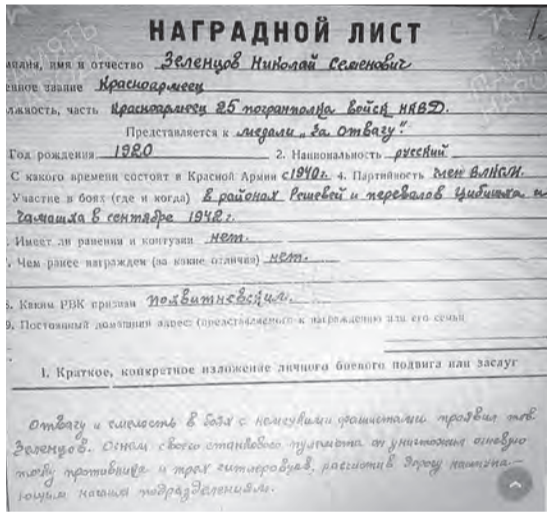 НАГРАДНОЙ ЛИСТ
имя и отчество Зеленцов Николай Семенович
звание Красноармеец
часть Красноармеец 25 погранполка войск НКВД.
Представляется к медали „За отвагу".
Год рождения 1920 2. Национальность русский
С какого времени состоит в Красной Армии с 1940г. 4. Партийность член ВЛКСМ.
Участие в боях (где и когда) в районах и перевалов и
в сентябре 1942г.
Имеет ли ранения и контузии нет.
Чем ранее награжден (за какие отличия) нет.
8. Каким РВК призван
9. Постоянный домашний адрес: (представляемого к награждению или его семьи
I. Краткое, конкретное изложение личного боевого подвига или заслуг
Отвагу и смелость в боях с немецкими фашистами проявил тов.
Зеленцов. Огнем своего станкового пулемета он уничтожил огневую
точку противника и трех гитлеровцев, расчистив дорогу наступа-
ющим нашим подразделениям.
ПАМЯТЬ
НАРОДА